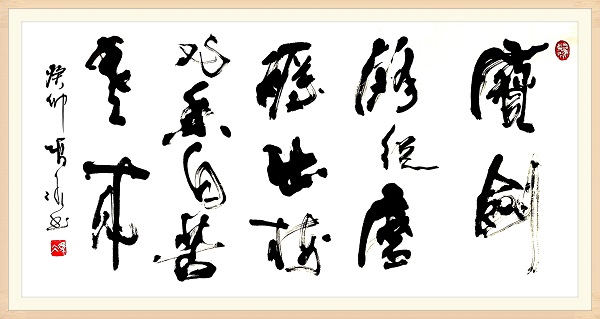 寶劍
鋒從磨
礪出梅
花香自苦
寒來
癸卯